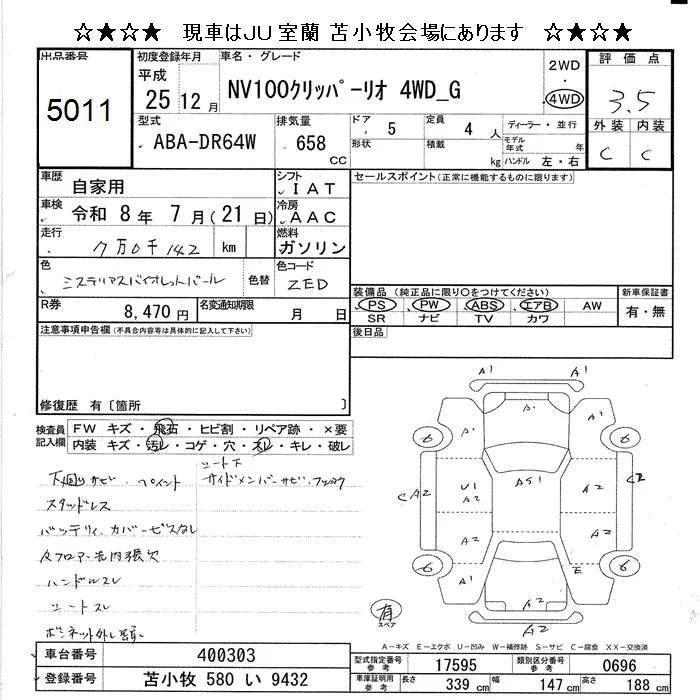 ☆★☆★ 現車はJU室蘭 苫小牧会場にあります ☆★☆★
出品番号 5011
初度登録年月 平成 25 12月
車名・グレード NV100クリッパーリオ 4WD_G
2WD ・ 4WD
評価点 3.5
外装 内装
C C
型式 ABA-DR64W
排気量 658 CC
ドア 5
形状
定員 4 人
積載 kg
ディーラー・並行
モデル年式 年
ハンドル 左・右
車歴 自家用
シフト IAT
車検 令和 8年 7月(21日)
冷房 AAC
走行 7万0千142 km
燃料 ガソリン
色 ミステリアスバイオレットパール
色替
色コード ZED
R券 8,470円
名変通知期限 月 日
セールスポイント(正常に機能するものに限ります)
装備品 (純正品に限り○をつけてください)
PS PW ABS エアB AW
SR ナビ TV カワ
新車保証書 有・無
後日品
注意事項申告欄(不具合内容等は具体的に記入して下さい)
修復歴 有〔箇所 〕
検査員記入欄
FW キズ・飛石・ヒビ割・リペア跡・×要
内装 キズ・汚レ・コゲ・穴・スレ・キレ・破レ
下廻りサビ・ペイント
シート下
サイドメンバーサビ・
スタッドレス
バッテリィ、カバービスなし
ハンドルスレ
シートスレ
A1 A1
A
6 6
A1 A2
U1
A2
A51
C A2
C2
A2 A2
6 6
A1 E
A2
A2
有
スペア
A-キズ E-エクボ U-凹み W-補修跡 S-サビ C-腐食 XX-交換済
車台番号 400303
登録番号 苫小牧 580 い 9432
型式指定番号 参考 17595
類別区分番号 参考 0696
車庫証明用 参考 長さ 339 cm 幅 147 cm 高さ 188 cm